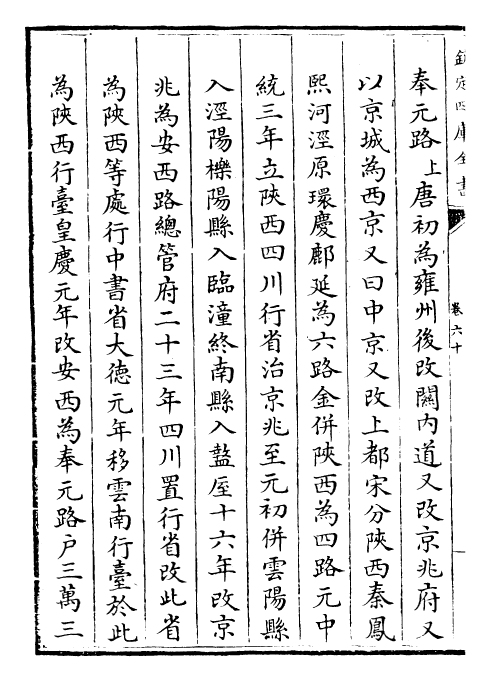 欽定四庫全書
卷六十
奉元路上唐初為雍州後改關內道又改京兆府又
以京城為西京又曰中京又改上都宋分陜西秦鳳
熙河涇原環慶鄜延為六路金併陜西為四路元中
統三年立陜西四川行省治京兆至元初併雲陽縣
入涇陽櫟陽縣入臨潼終南縣入盩厔十六年改京
兆為安西路總管府二十三年四川置行省改此省
為陜西等處行中書省大德元年移雲南行臺於此
為陜西行臺皇慶元年改安西為奉元路户三萬三